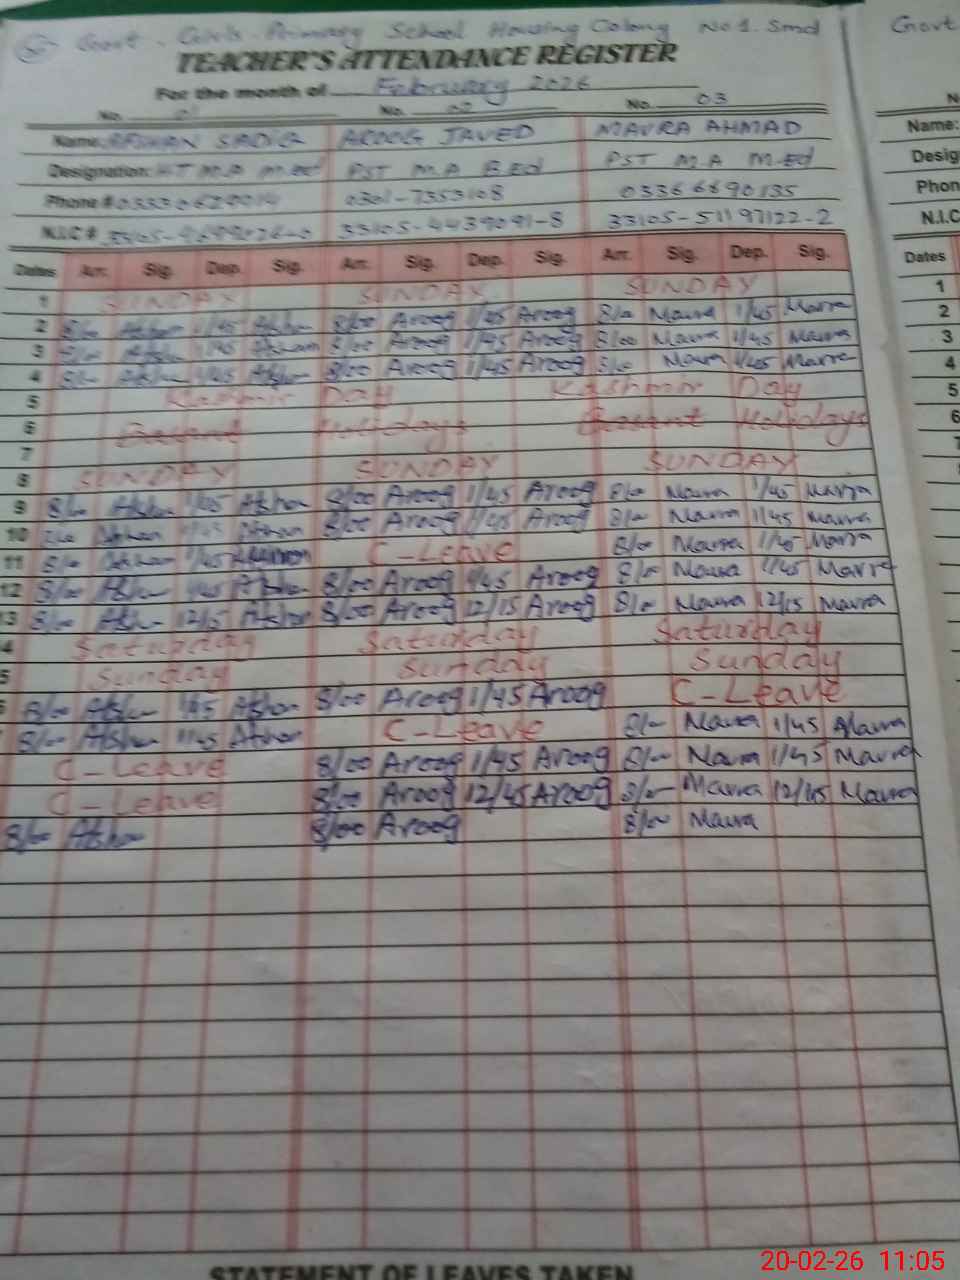 Govt. Girls Primary School Housing Colony No 1. Smd
Govt
TEACHER'S ATTENDANCE REGISTER
For the month of February 2026
No. 01 No. 02 No. 03
Name: AFSHAN SADIQ AROOG JAVED MAVRA AHMAD
Designation: HT M.A M.ed PST M.A B.Ed PST M.A M.Ed
Phone # 0301-7353108 03366890135
N.I.C # 33105-4439091-8 33105-51197122-2
Name:
Desig
Phon
N.I.C
Dates Arr. Sig. Dep. Sig. Arr. Sig. Dep. Sig. Arr. Sig. Dep. Sig.
Dates
1 SUNDAY SUNDAY SUNDAY 1
2 8/00 Afshan 1/45 Afshan 8/00 Aroog 1/45 Aroog 8/00 Mavra 1/45 Mavra 2
3 8/00 Afshan 1/45 Afshan 8/00 Aroog 1/45 Aroog 8/00 Mavra 1/45 Mavra 3
4 8/00 Afshan 1/45 Afshan 8/00 Aroog 1/45 Aroog 8/00 Mavra 1/45 Mavra 4
5 Kashmir Day Kashmir Day 5
6 Basant Holidays Basant Holidays 6
7
8 SUNDAY SUNDAY SUNDAY
9 8/00 Afshan 1/45 Afshan 8/00 Aroog 1/45 Aroog 8/00 Mavra 1/45 Mavra
10 8/00 Afshan 1/45 Afshan 8/00 Aroog 1/45 Aroog 8/00 Mavra 1/45 Mavra
11 8/00 Afshan 1/45 Afshan C-Leave 8/00 Mavra 1/45 Mavra
12 8/00 Afshan 1/45 Afshan 8/00 Aroog 1/45 Aroog 8/00 Mavra 1/45 Mavra
13 8/00 Afshan 12/15 Afshan 8/00 Aroog 12/15 Aroog 8/00 Mavra 12/15 Mavra
4 Saturday Saturday Saturday
5 Sunday Sunday Sunday
8/00 Afshan 1/45 Afshan 8/00 Aroog 1/45 Aroog C-Leave
8/00 Afshan 1/45 Afshan C-Leave 8/00 Mavra 1/45 Mavra
C-Leave 8/00 Aroog 1/45 Aroog 8/00 Mavra 1/45 Mavra
C-Leave 8/00 Aroog 12/45 Aroog 8/00 Mavra 12/45 Mavra
8/00 Afshan 8/00 Aroog 8/00 Mavra
STATEMENT OF LEAVES TAKEN
20-02-26 11:05